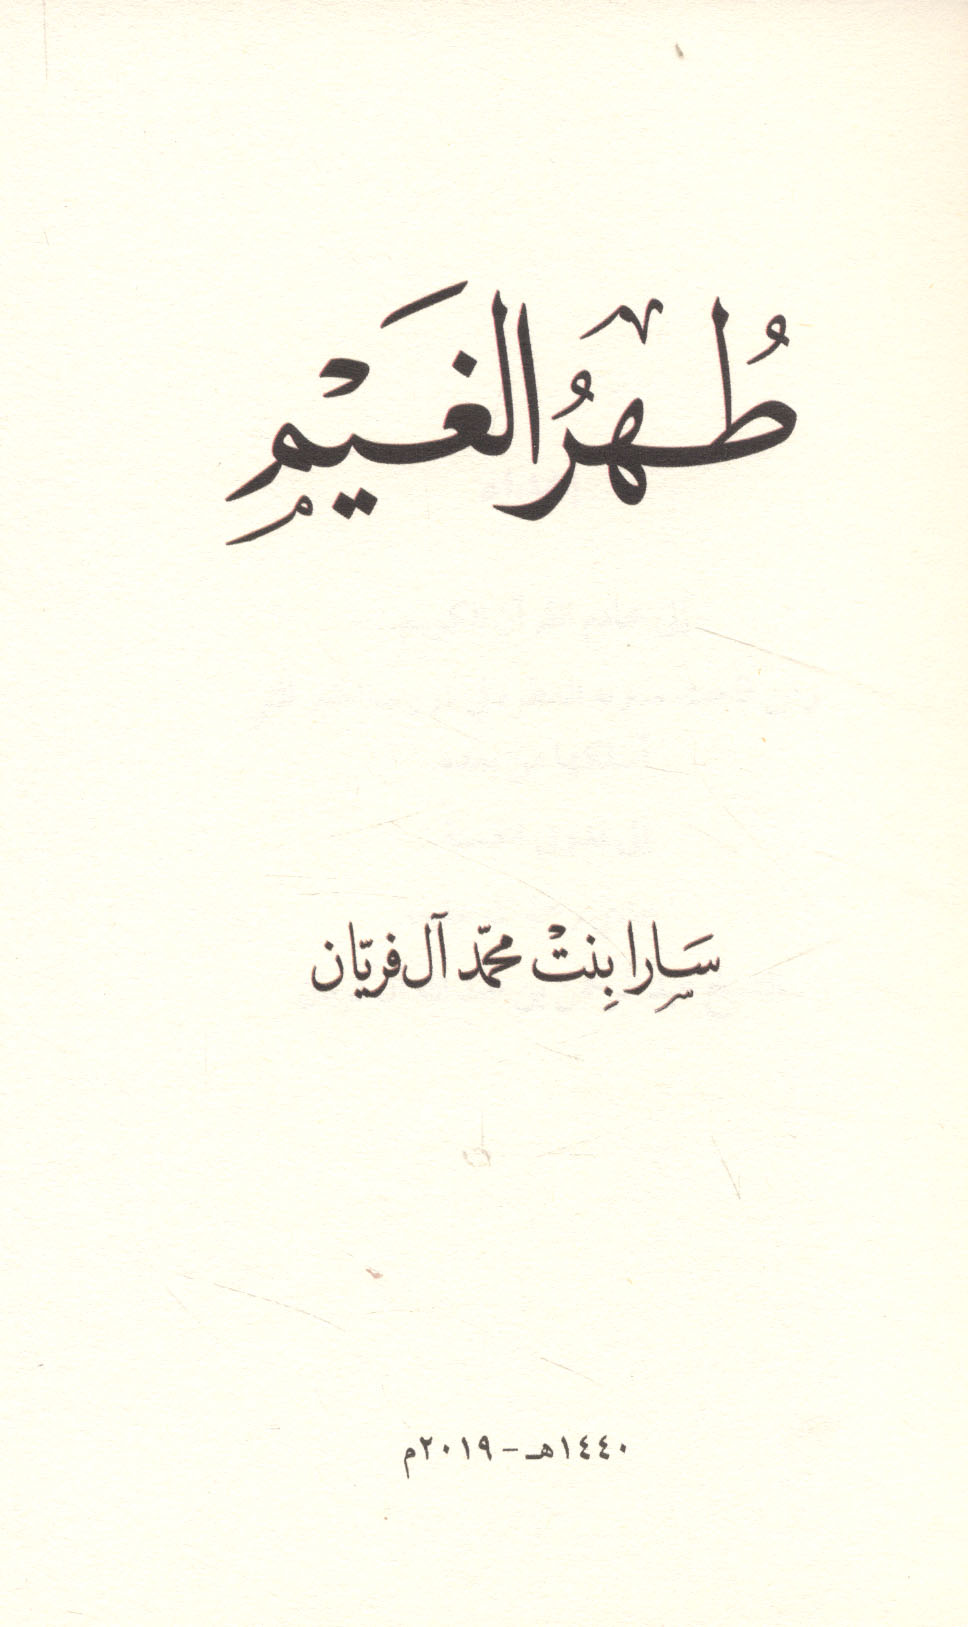 طُهرُ الغَيْم
سَارا بِنتْ محمّد آل فريّان
١٤٤٠هـ - ٢٠١٩م